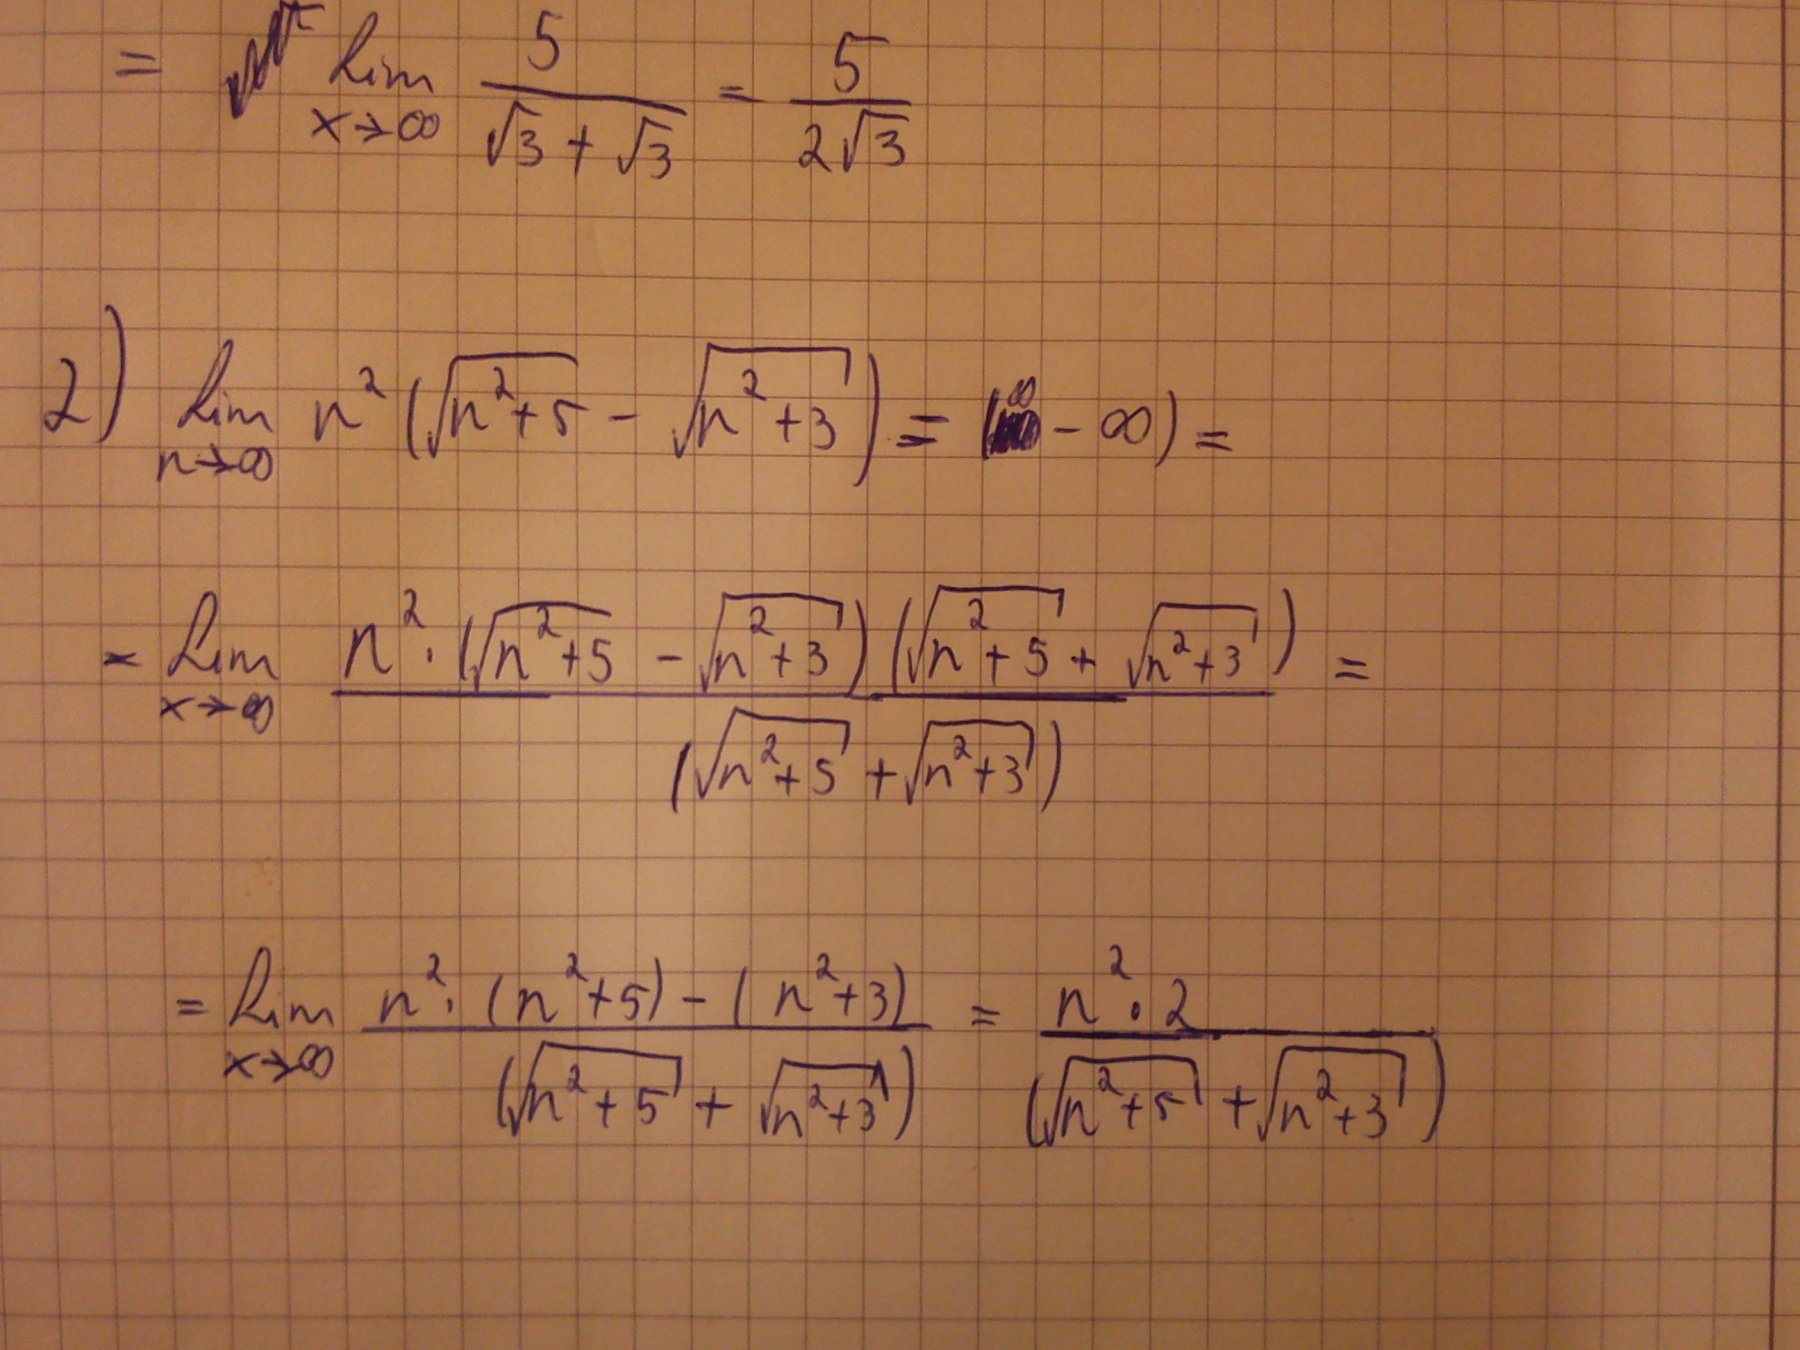 = lim x→∞ 5/(√3 + √3) = 5/(2√3)
2) lim n→∞ n² (√(n²+5) - √(n²+3)) = (∞ - ∞) =
= lim x→∞ n² · (√(n²+5) - √(n²+3)) (√(n²+5) + √(n²+3)) / (√(n²+5) + √(n²+3)) =
= lim x→∞ n² · (n²+5) - (n²+3) / (√(n²+5) + √(n²+3)) = n² · 2 / (√(n²+5) + √(n²+3))